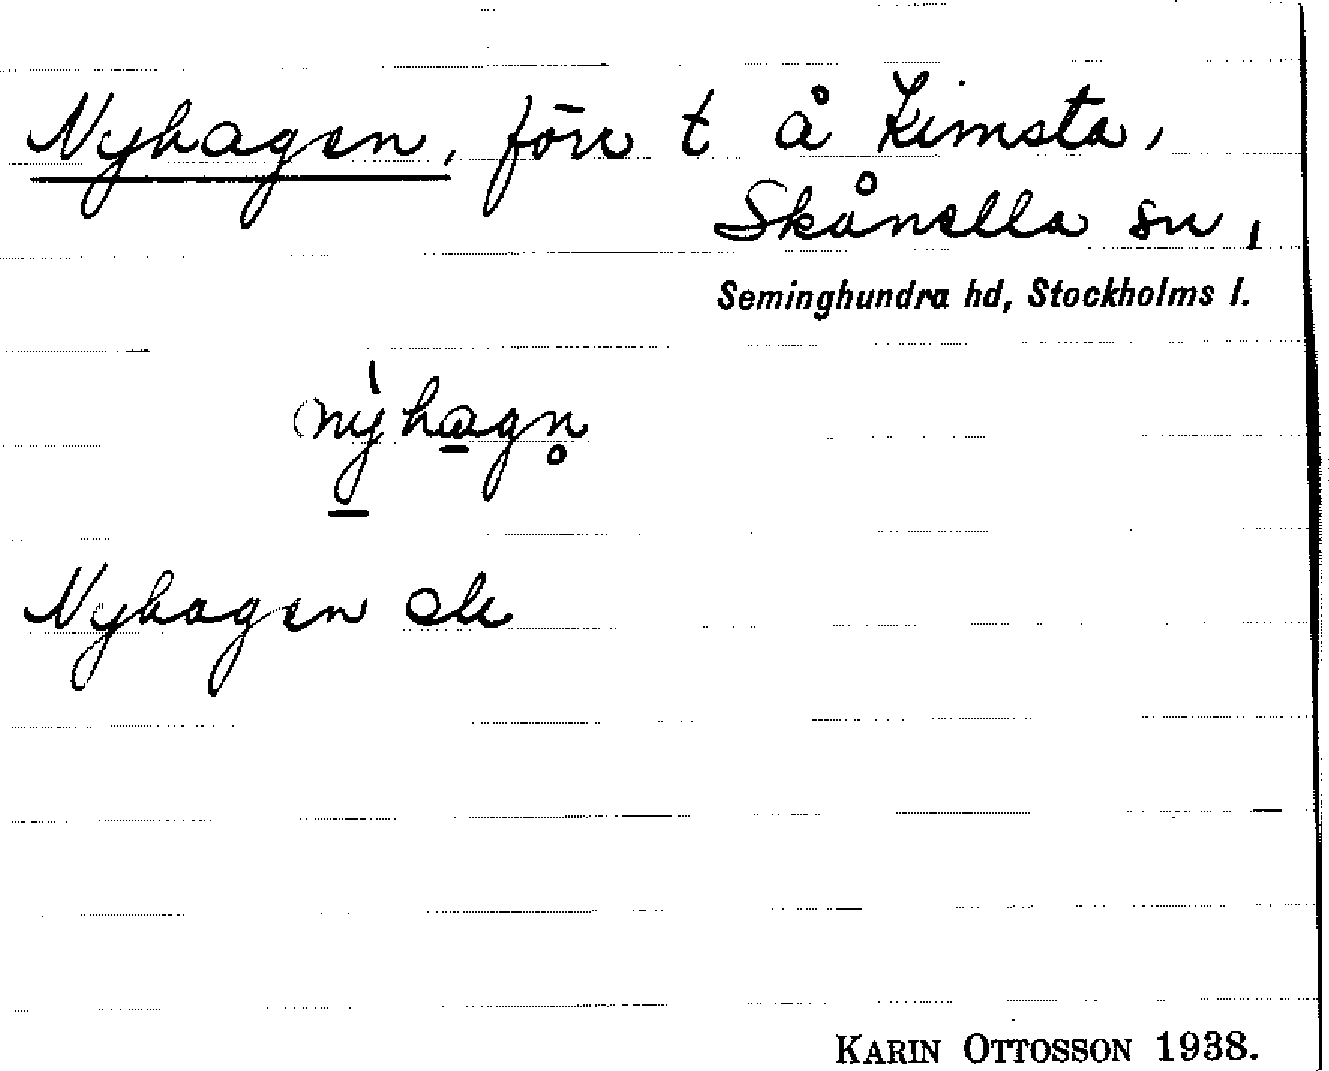 Nyhagen, förr t å Kimsta,
Skånella sn,
Seminghundra hd, Stockholms l.
nýhagn̥
Nyhagen ek
KARIN OTTOSSON 1938.